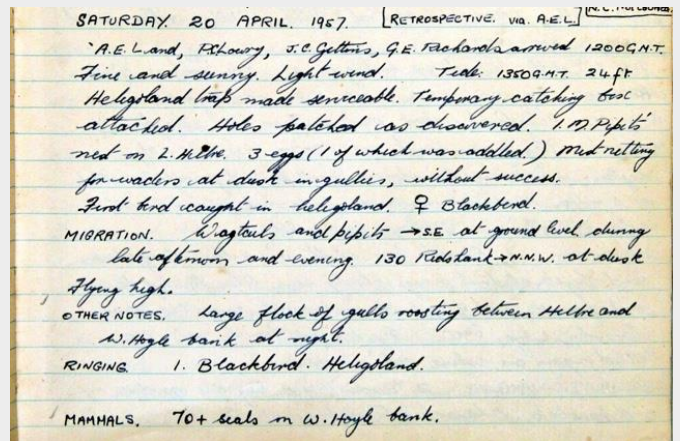 SATURDAY. 20 APRIL. 1957. [RETROSPECTIVE. VIA. A.E.L.]
A.E. Land, P. Lowry, J.C. Gittins, G.E. Richards arrived 1200 G.M.T.
Fine and sunny. Light wind. Tide: 1350 G.M.T. 24ft
Heligoland trap made serviceable. Temporary catching box
attached. Holes patched as discovered. 1. M. Pipits'
nest on L. Hilbre. 3 eggs (1 of which was addled.) Mist netting
for waders at dusk in gullies, without success.
First bird caught in heligoland. ♀ Blackbird.
MIGRATION. Wagtails and pipits → S.E. at ground level during
late afternoon and evening. 130 Redshank → N.N.W. at dusk
Flying high.
OTHER NOTES. Large flock of gulls roosting between Hilbre and
W. Hoyle bank at night.
RINGING. 1. Blackbird. Heligoland.
MAMMALS. 70+ seals on W. Hoyle bank.